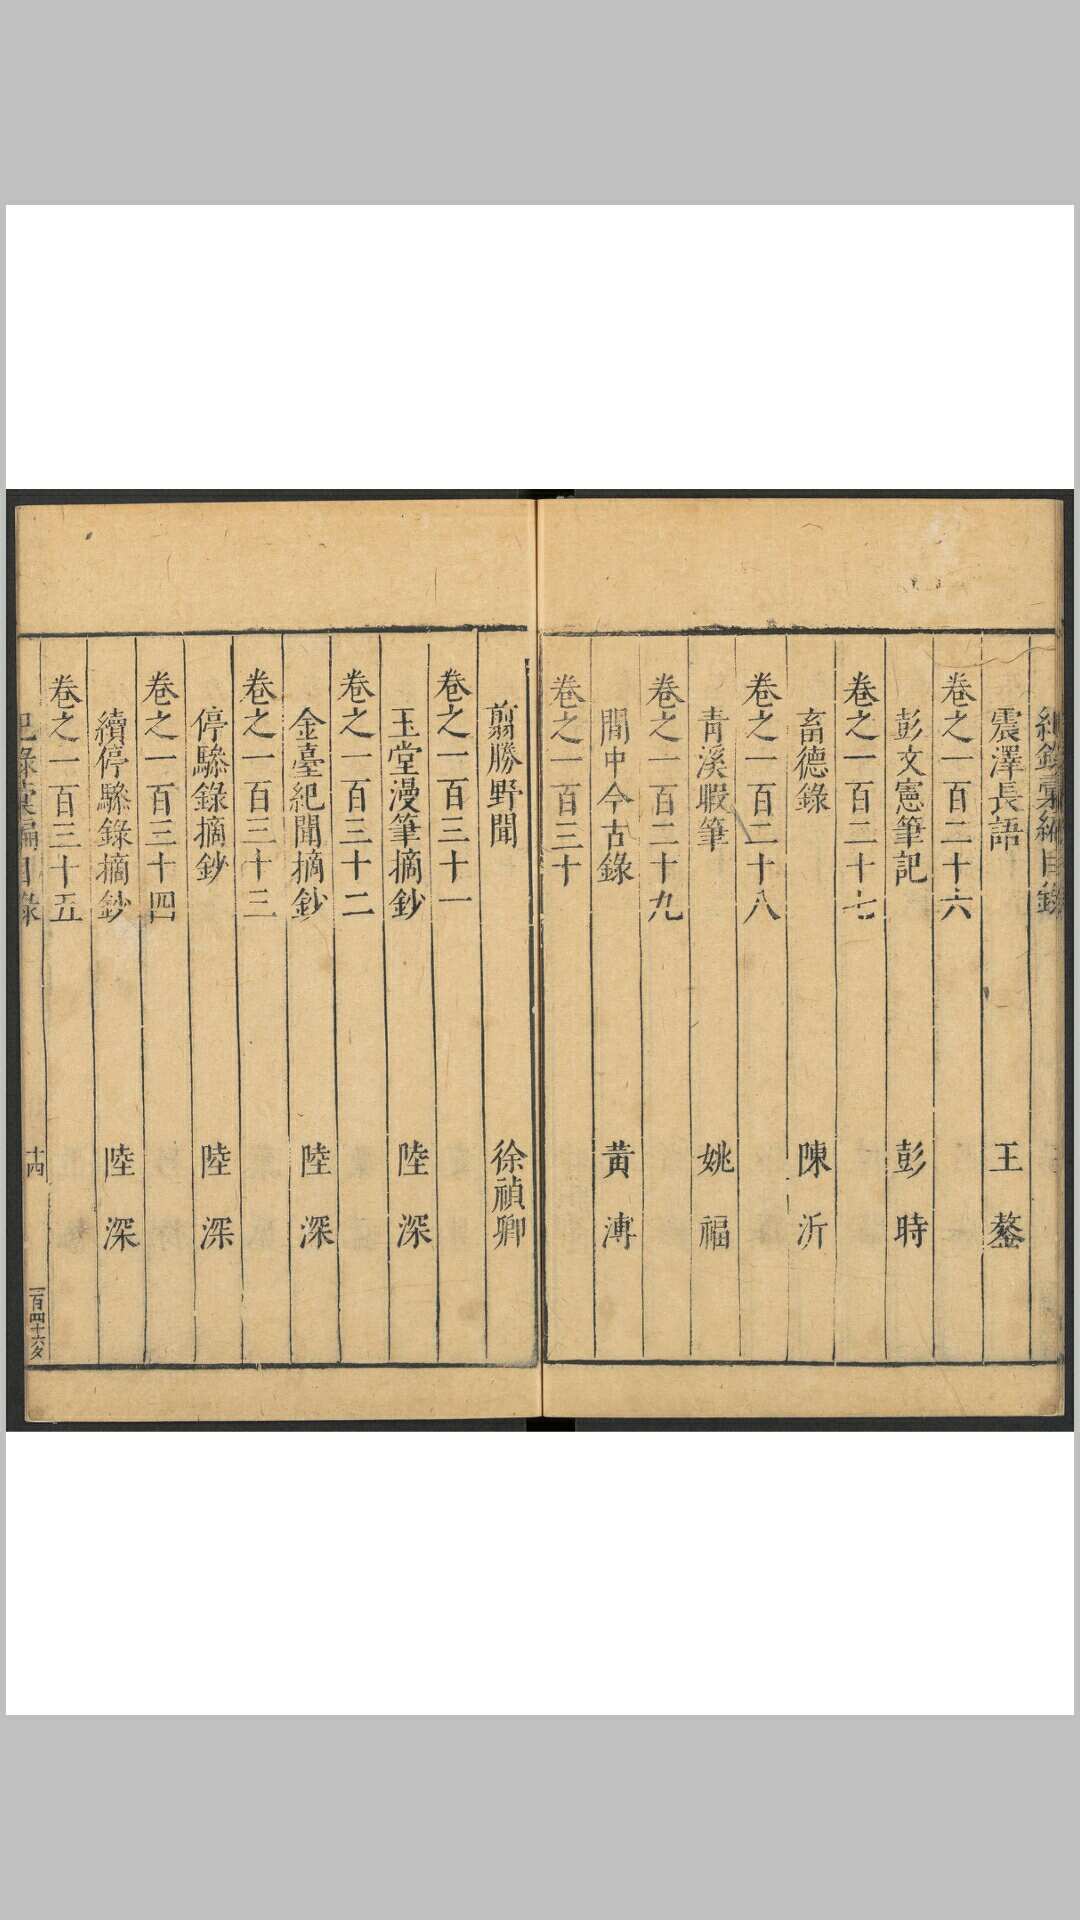 紀錄彙編目錄
震澤長語 王鏊
卷之一百二十六
彭文憲筆記 彭時
卷之一百二十七
畜德錄 陳沂
卷之一百二十八
靑溪暇筆 姚福
卷之一百二十九
閒中今古錄 黃溥
卷之一百三十
翦勝野聞 徐禎卿
卷之一百三十一
玉堂漫筆摘鈔 陸深
卷之一百三十二
金臺紀聞摘鈔 陸深
卷之一百三十三
停驂錄摘鈔 陸深
卷之一百三十四
續停驂錄摘鈔 陸深
卷之一百三十五
紀錄彙編目錄 十四 一百四十六